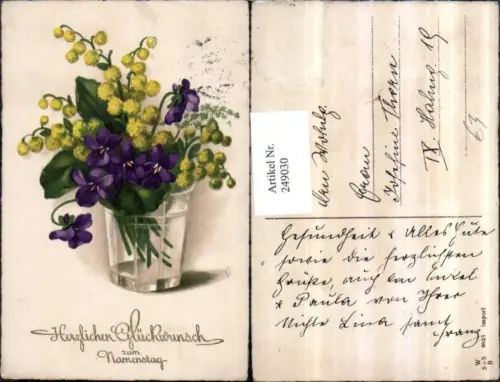 Herzlichen Glückwunsch
zum
Namenstag
Artikel Nr.
249030
Frau
Josefine Thorn
IX.
19
63
Gesundheit & Alles Gute
sowie die herzlichsten
Grüße, auch an Onkel
& Paula von Ihrer
Nichte Lina samt
Franz
W
5+3
B
Import